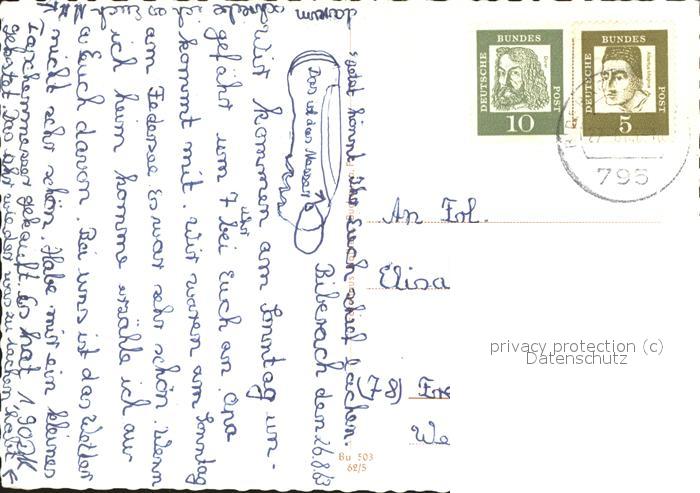 Biberach den 26.8.63
Wir kommen am Sonntag un-
gefähr um 7 Uhr bei Euch an. Opa
kommt mit. Wir waren am Sonntag
am Federsee. Es war sehr schön. Wenn
ich heim komme erzähle ich
Euch davon. Bei uns ist das Wetter
nicht sehr schön. Habe mir ein kleines
Taschenmesser gekauft. Es hat 1,90 DM
gekostet.
Das ist das Messer
könnt Ihr Euch schief lachen.
DEUTSCHE BUNDES POST
10
DEUTSCHE BUNDES POST
5
795
An Frl.
Elisa
(78)
Bu 503
62/5
privacy protection (c)
Datenschutz